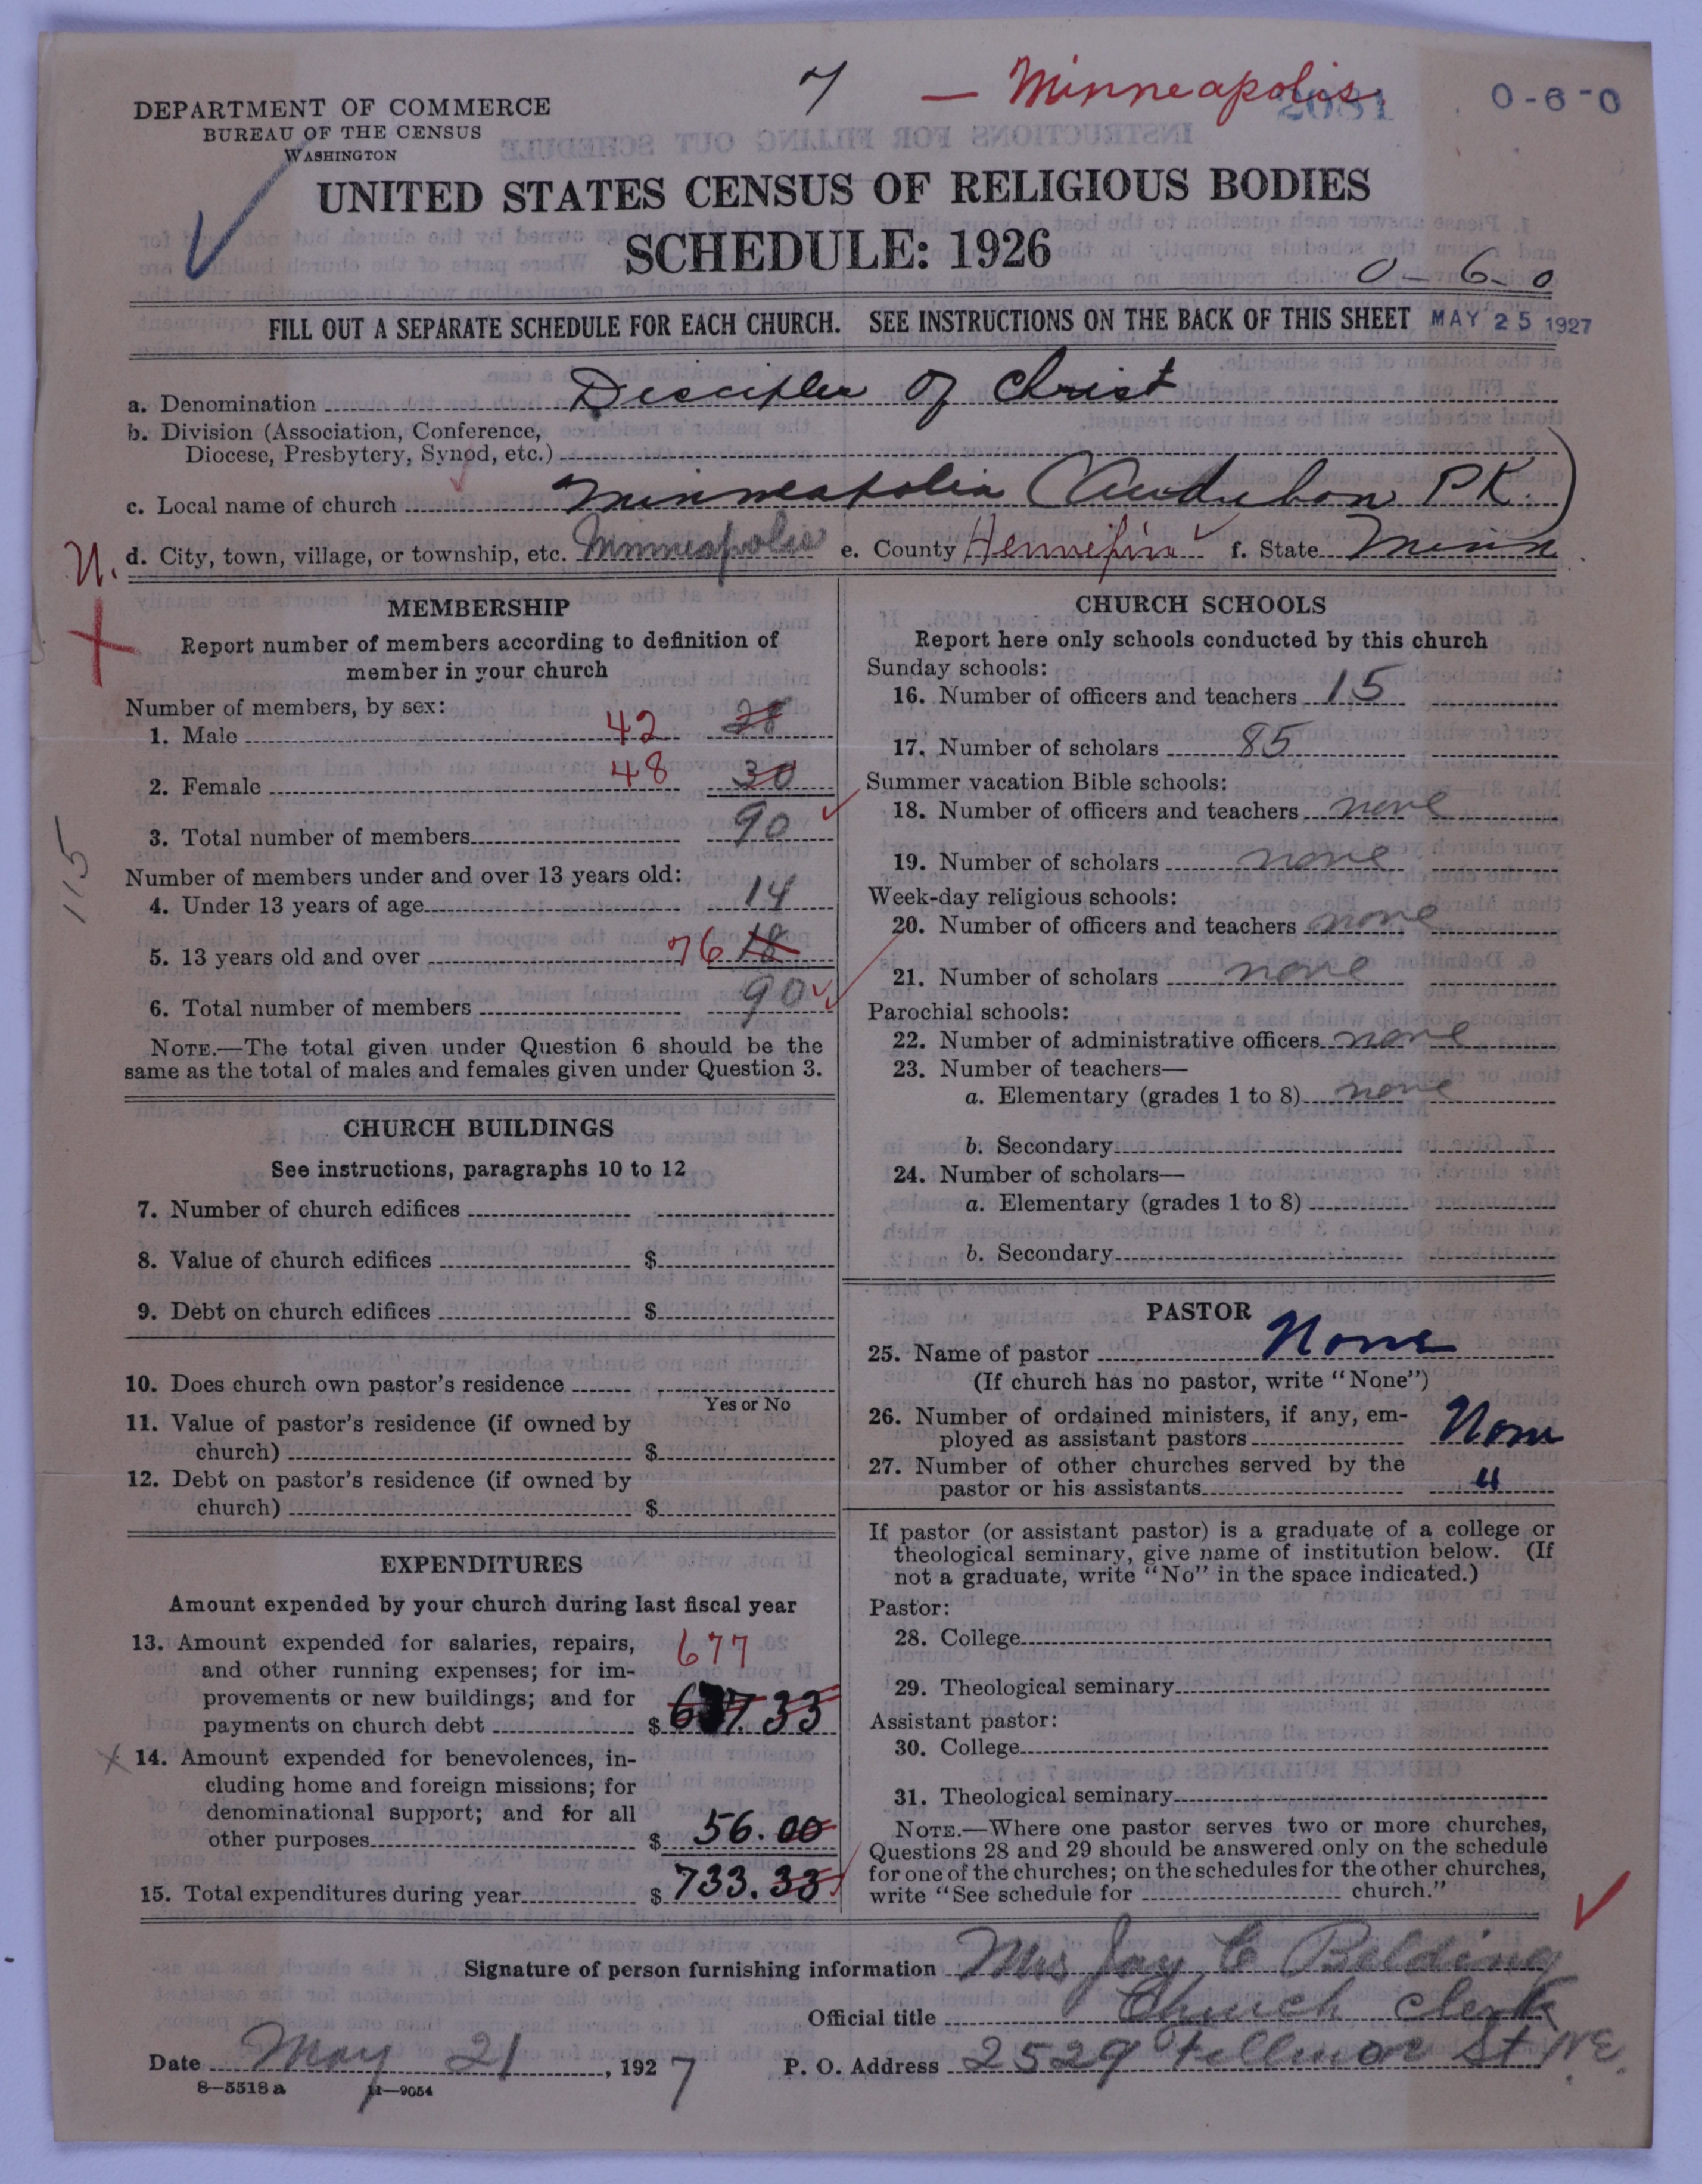 7 — Minneapolis. 2081 0-6-0
DEPARTMENT OF COMMERCE
BUREAU OF THE CENSUS
WASHINGTON
UNITED STATES CENSUS OF RELIGIOUS BODIES
SCHEDULE: 1926
0-6-0
FILL OUT A SEPARATE SCHEDULE FOR EACH CHURCH. SEE INSTRUCTIONS ON THE BACK OF THIS SHEET MAY 25 1927
a. Denomination Disciples of Christ
b. Division (Association, Conference,
Diocese, Presbytery, Synod, etc.)
c. Local name of church Minneapolis (Audubon PK.)
U. d. City, town, village, or township, etc. Minneapolis e. County Hennepin f. State Minn
MEMBERSHIP
Report number of members according to definition of
member in your church
Number of members, by sex:
1. Male 42 28
2. Female 48 30
3. Total number of members 90
115
Number of members under and over 13 years old:
4. Under 13 years of age 14
5. 13 years old and over 76 18
6. Total number of members 90
NOTE.—The total given under Question 6 should be the
same as the total of males and females given under Question 3.
CHURCH BUILDINGS
See instructions, paragraphs 10 to 12
7. Number of church edifices
8. Value of church edifices $
9. Debt on church edifices $
10. Does church own pastor's residence
Yes or No
11. Value of pastor's residence (if owned by
church) $
12. Debt on pastor's residence (if owned by
church) $
EXPENDITURES
Amount expended by your church during last fiscal year
13. Amount expended for salaries, repairs, 677
and other running expenses; for im-
provements or new buildings; and for
payments on church debt $ 677.33
14. Amount expended for benevolences, in-
cluding home and foreign missions; for
denominational support; and for all
other purposes $ 56.00
15. Total expenditures during year $ 733.33
CHURCH SCHOOLS
Report here only schools conducted by this church
Sunday schools:
16. Number of officers and teachers 15
17. Number of scholars 85
Summer vacation Bible schools:
18. Number of officers and teachers none
19. Number of scholars none
Week-day religious schools:
20. Number of officers and teachers none
21. Number of scholars none
Parochial schools:
22. Number of administrative officers none
23. Number of teachers—
a. Elementary (grades 1 to 8) none
b. Secondary
24. Number of scholars—
a. Elementary (grades 1 to 8)
b. Secondary
PASTOR
25. Name of pastor None
(If church has no pastor, write "None")
26. Number of ordained ministers, if any, em-
ployed as assistant pastors None
27. Number of other churches served by the
pastor or his assistants "
If pastor (or assistant pastor) is a graduate of a college or
theological seminary, give name of institution below. (If
not a graduate, write "No" in the space indicated.)
Pastor:
28. College
29. Theological seminary
Assistant pastor:
30. College
31. Theological seminary
NOTE.—Where one pastor serves two or more churches,
Questions 28 and 29 should be answered only on the schedule
for one of the churches; on the schedules for the other churches,
write "See schedule for church."
Signature of person furnishing information Mrs Jay C Belding
Official title Church Clerk
Date May 21, 1927 P. O. Address 2529 Fillmor St NE.
8—5518a 11—9054